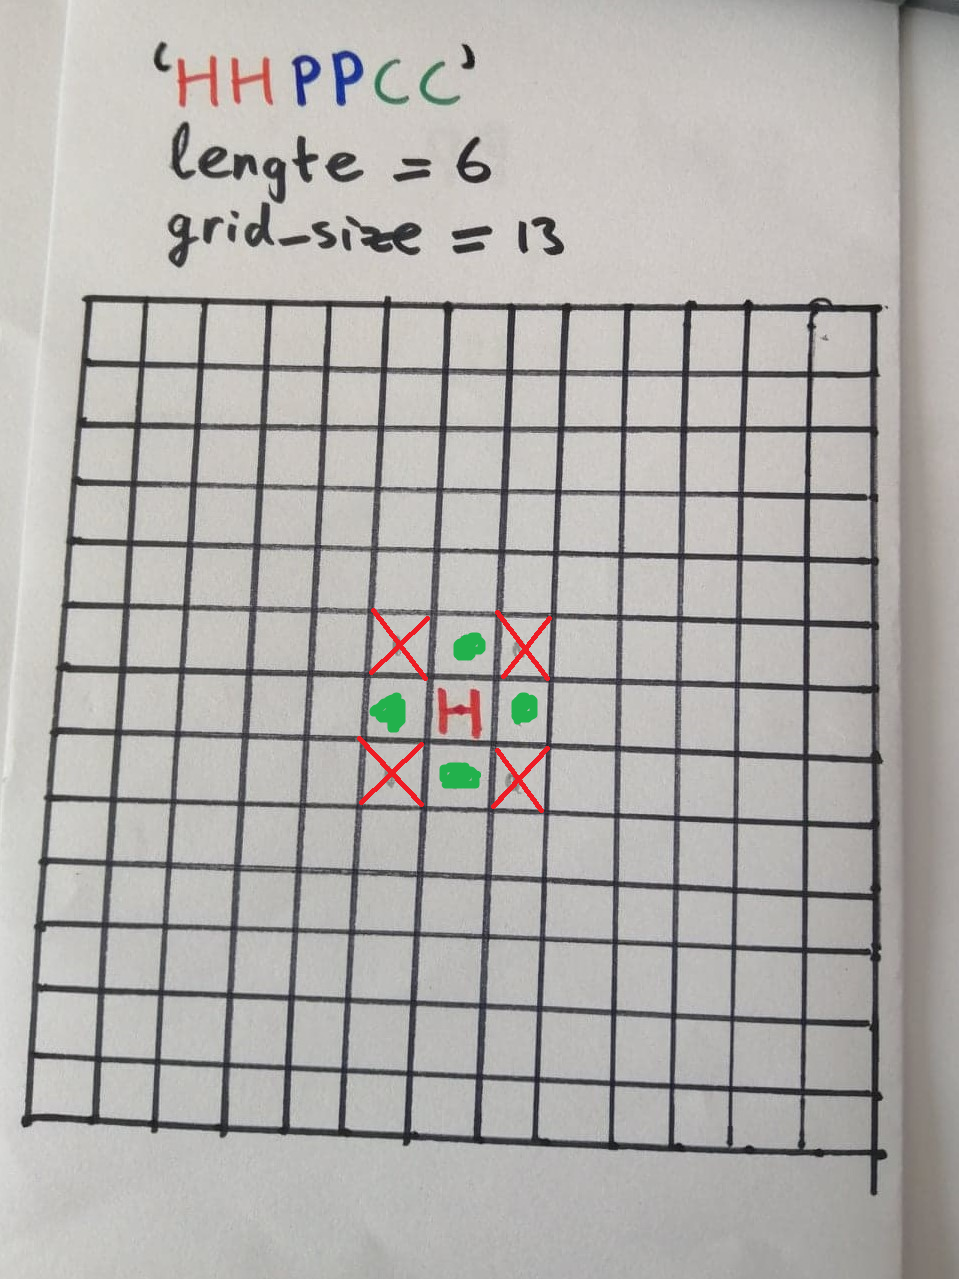 'HHPPCC'
lengte = 6
grid_size = 13
H